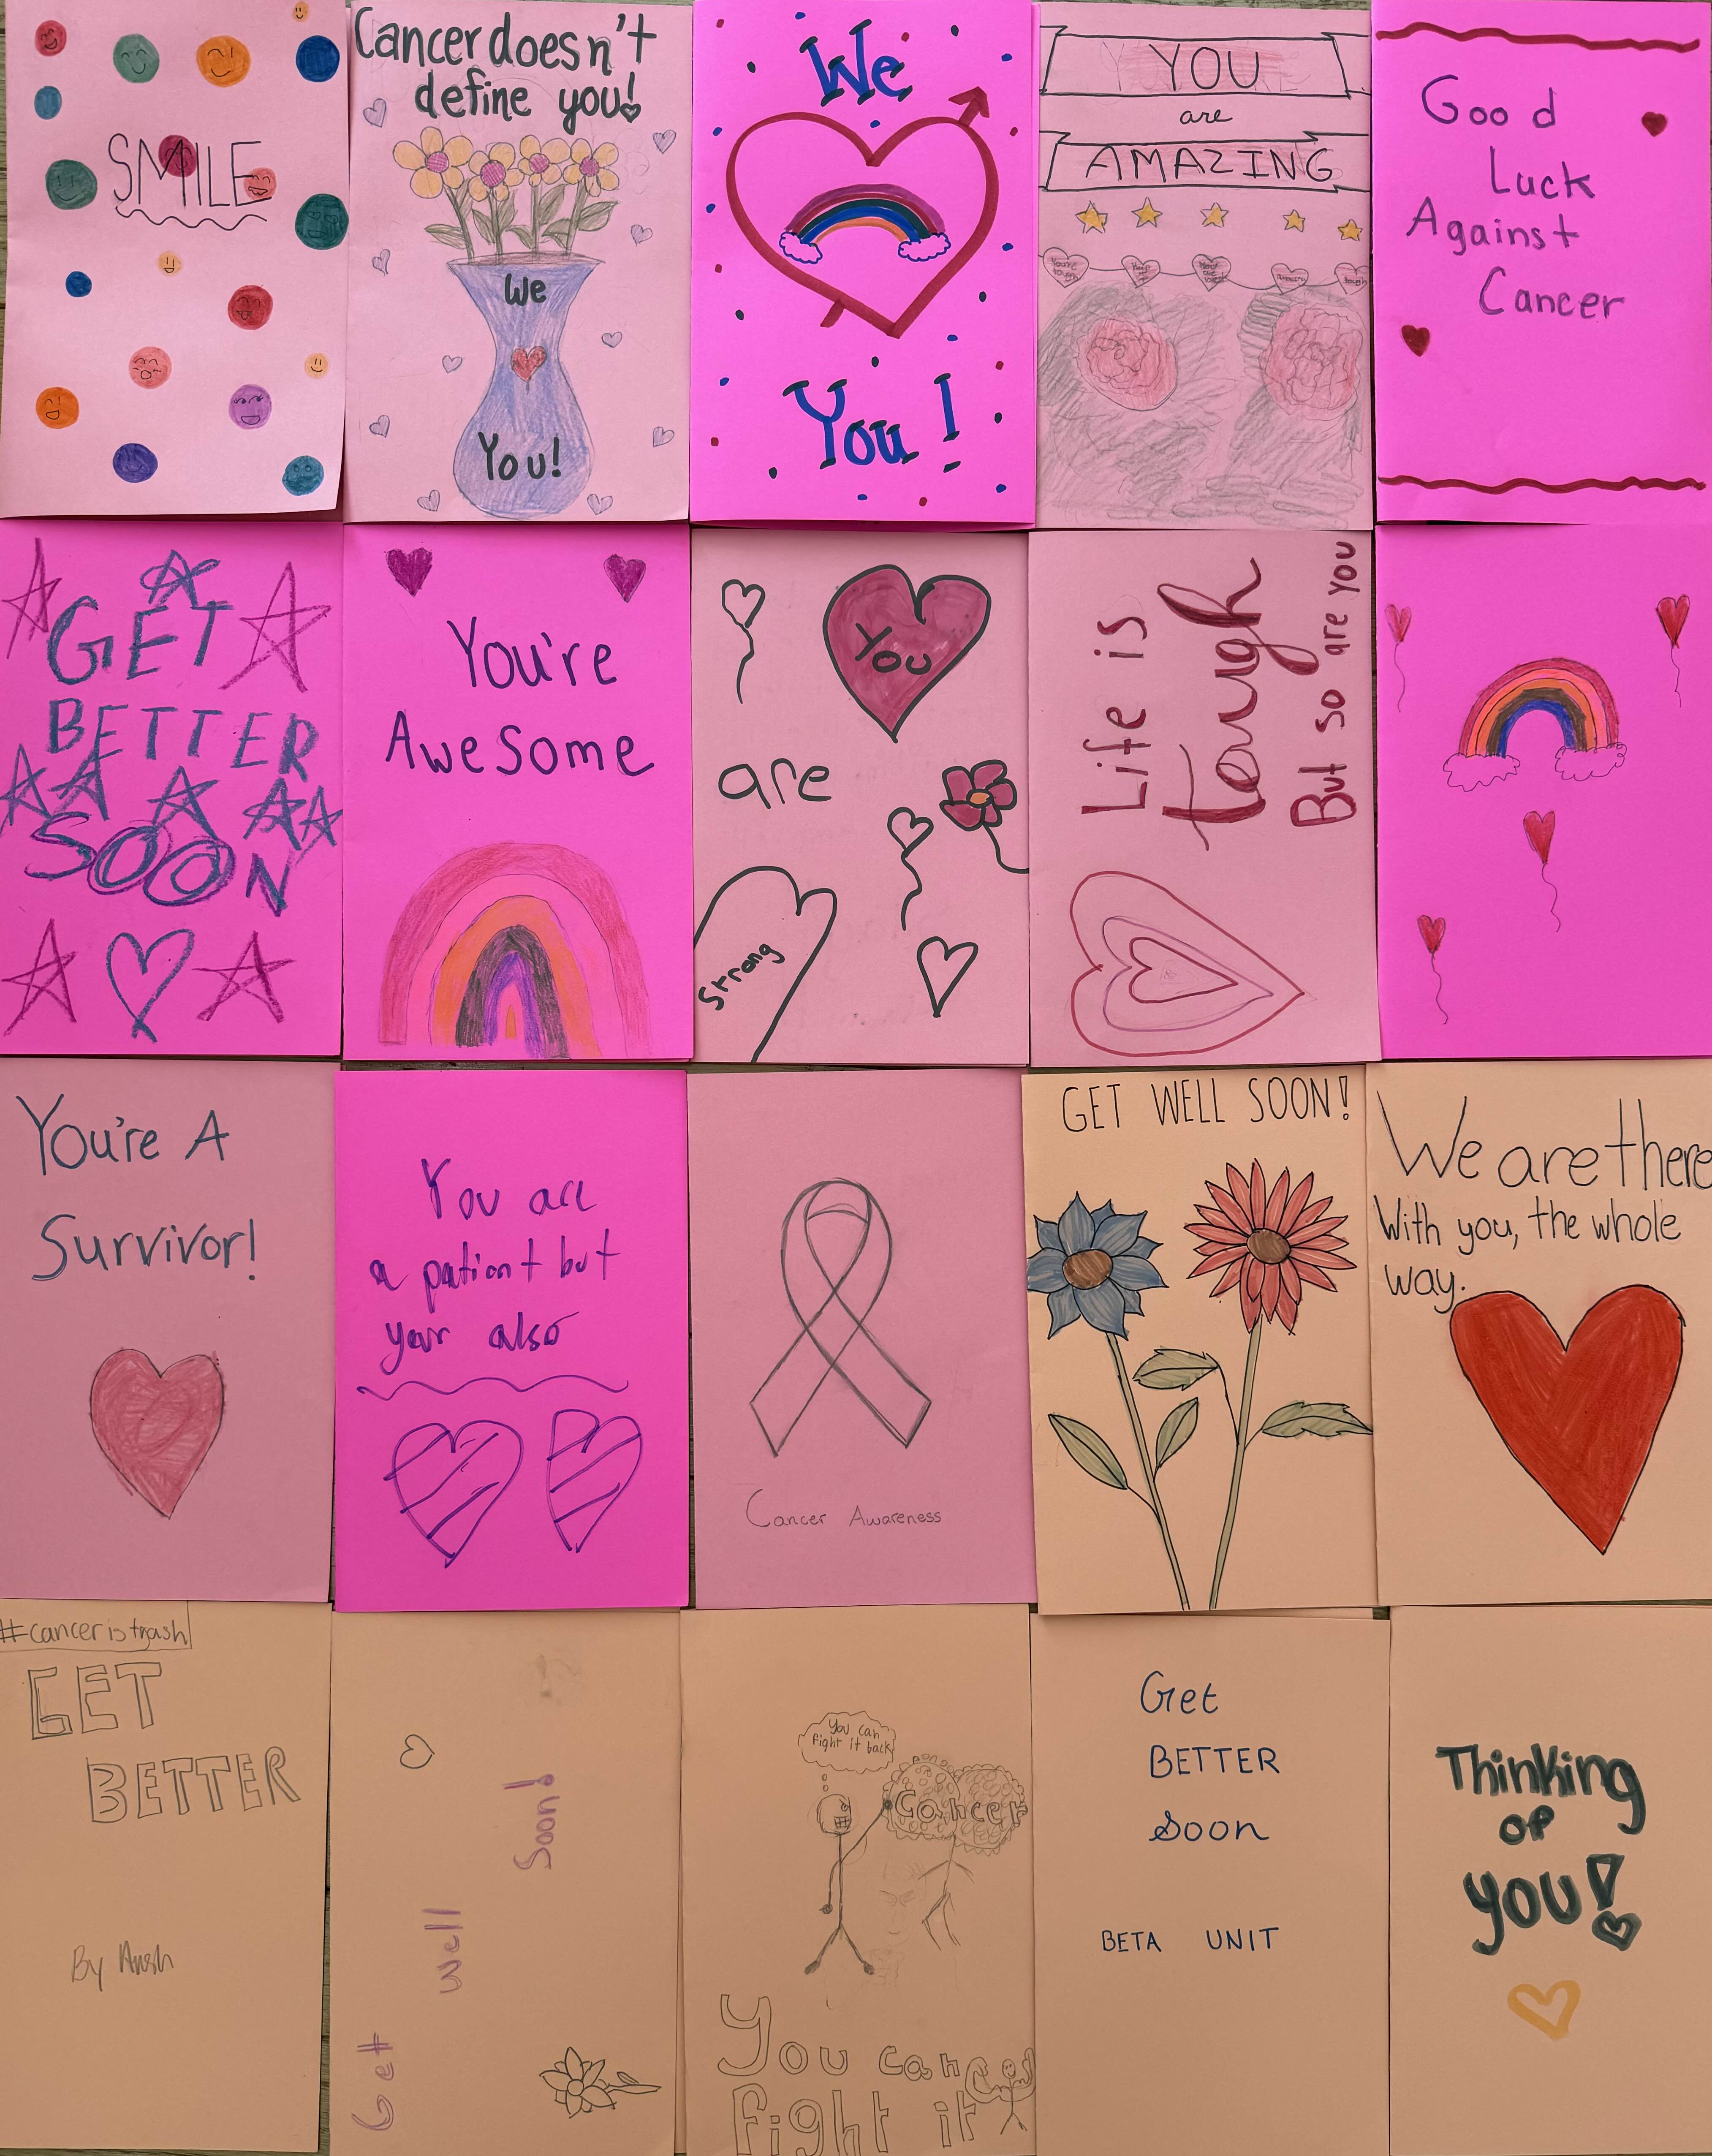 SMILE
Cancer doesn't
define you!
We
You!
We
You!
YOU
are
AMAZING
Good
Luck
Against
Cancer
GET
BETTER
SOON
You're
Awesome
You
are
Strong
Life is
tough
But so are you
You're A
Survivor!
You are
a patient but
your also
Cancer Awareness
GET WELL SOON!
We are there
With you, the whole
way.
#canceristrash
GET
BETTER
By Ansh
Get
Well
Soon!
You can
fight it back
Cancer
You can
fight it
Get
BETTER
Soon
BETA UNIT
Thinking
of
you!